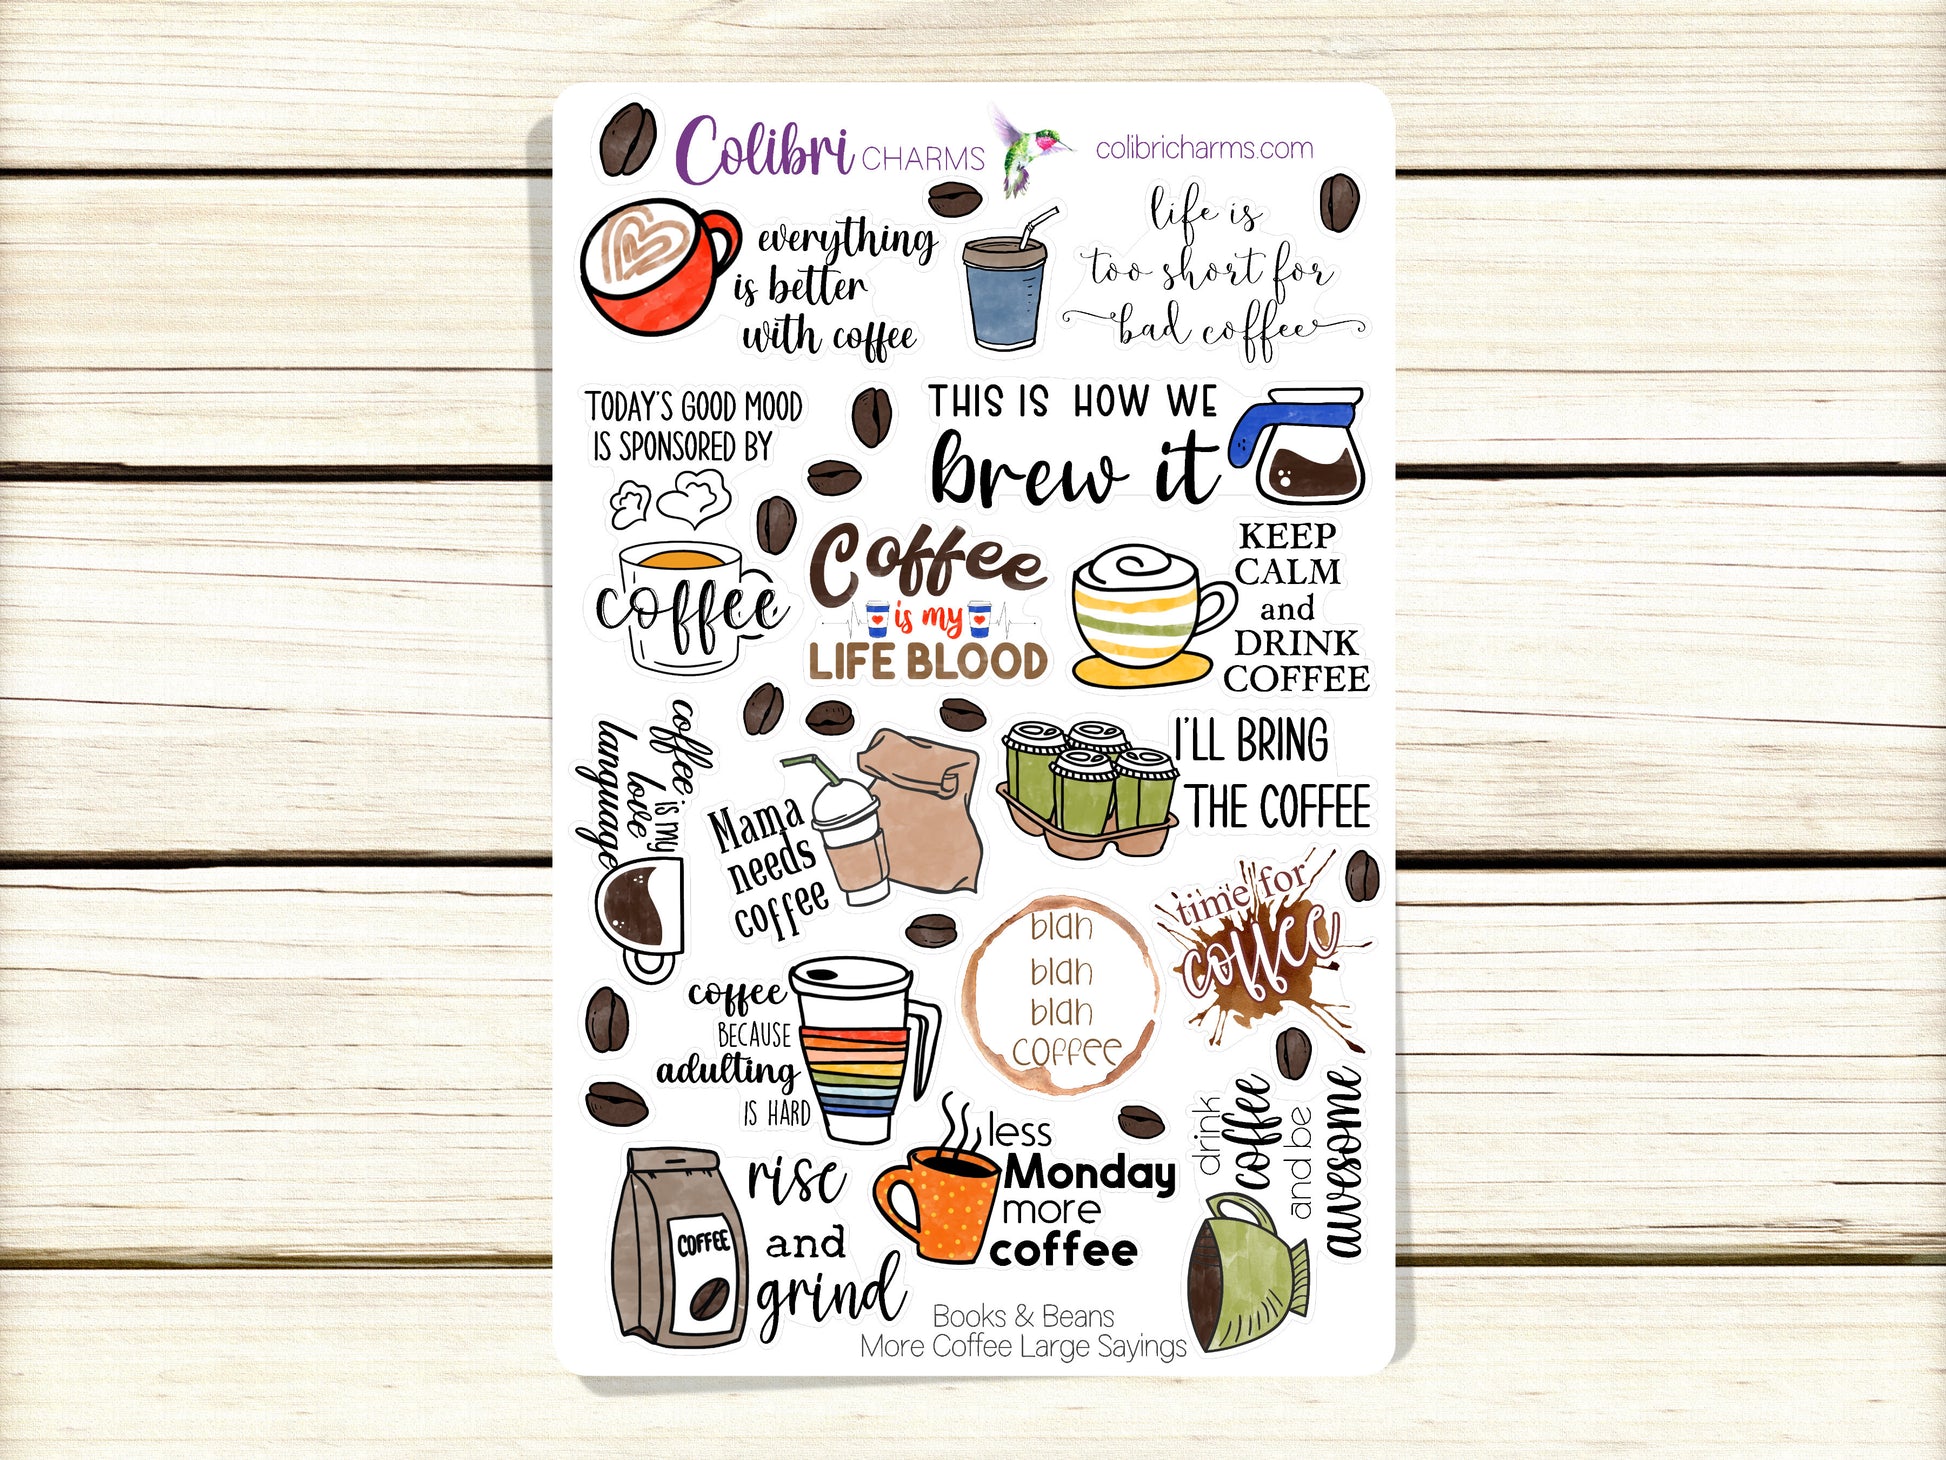 Colibri CHARMS
colibricharms.com
everything
is better
with coffee
life is
too short for
bad coffee
TODAY'S GOOD MOOD
IS SPONSORED BY
coffee
THIS IS HOW WE
brew it
Coffee
is my
LIFE BLOOD
KEEP
CALM
and
DRINK
COFFEE
coffee is my
love
language
Mama
needs
coffee
I'LL BRING
THE COFFEE
blah
blah
blah
COFFEE
time for
coffee
coffee
BECAUSE
adulting
IS HARD
COFFEE
rise
and
grind
less
Monday
more
coffee
drink
coffee
and be
awesome
Books & Beans
More Coffee Large Sayings